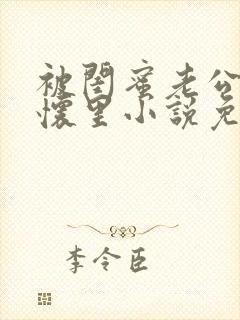 被闺蜜老公
怀里小說免
李令臣